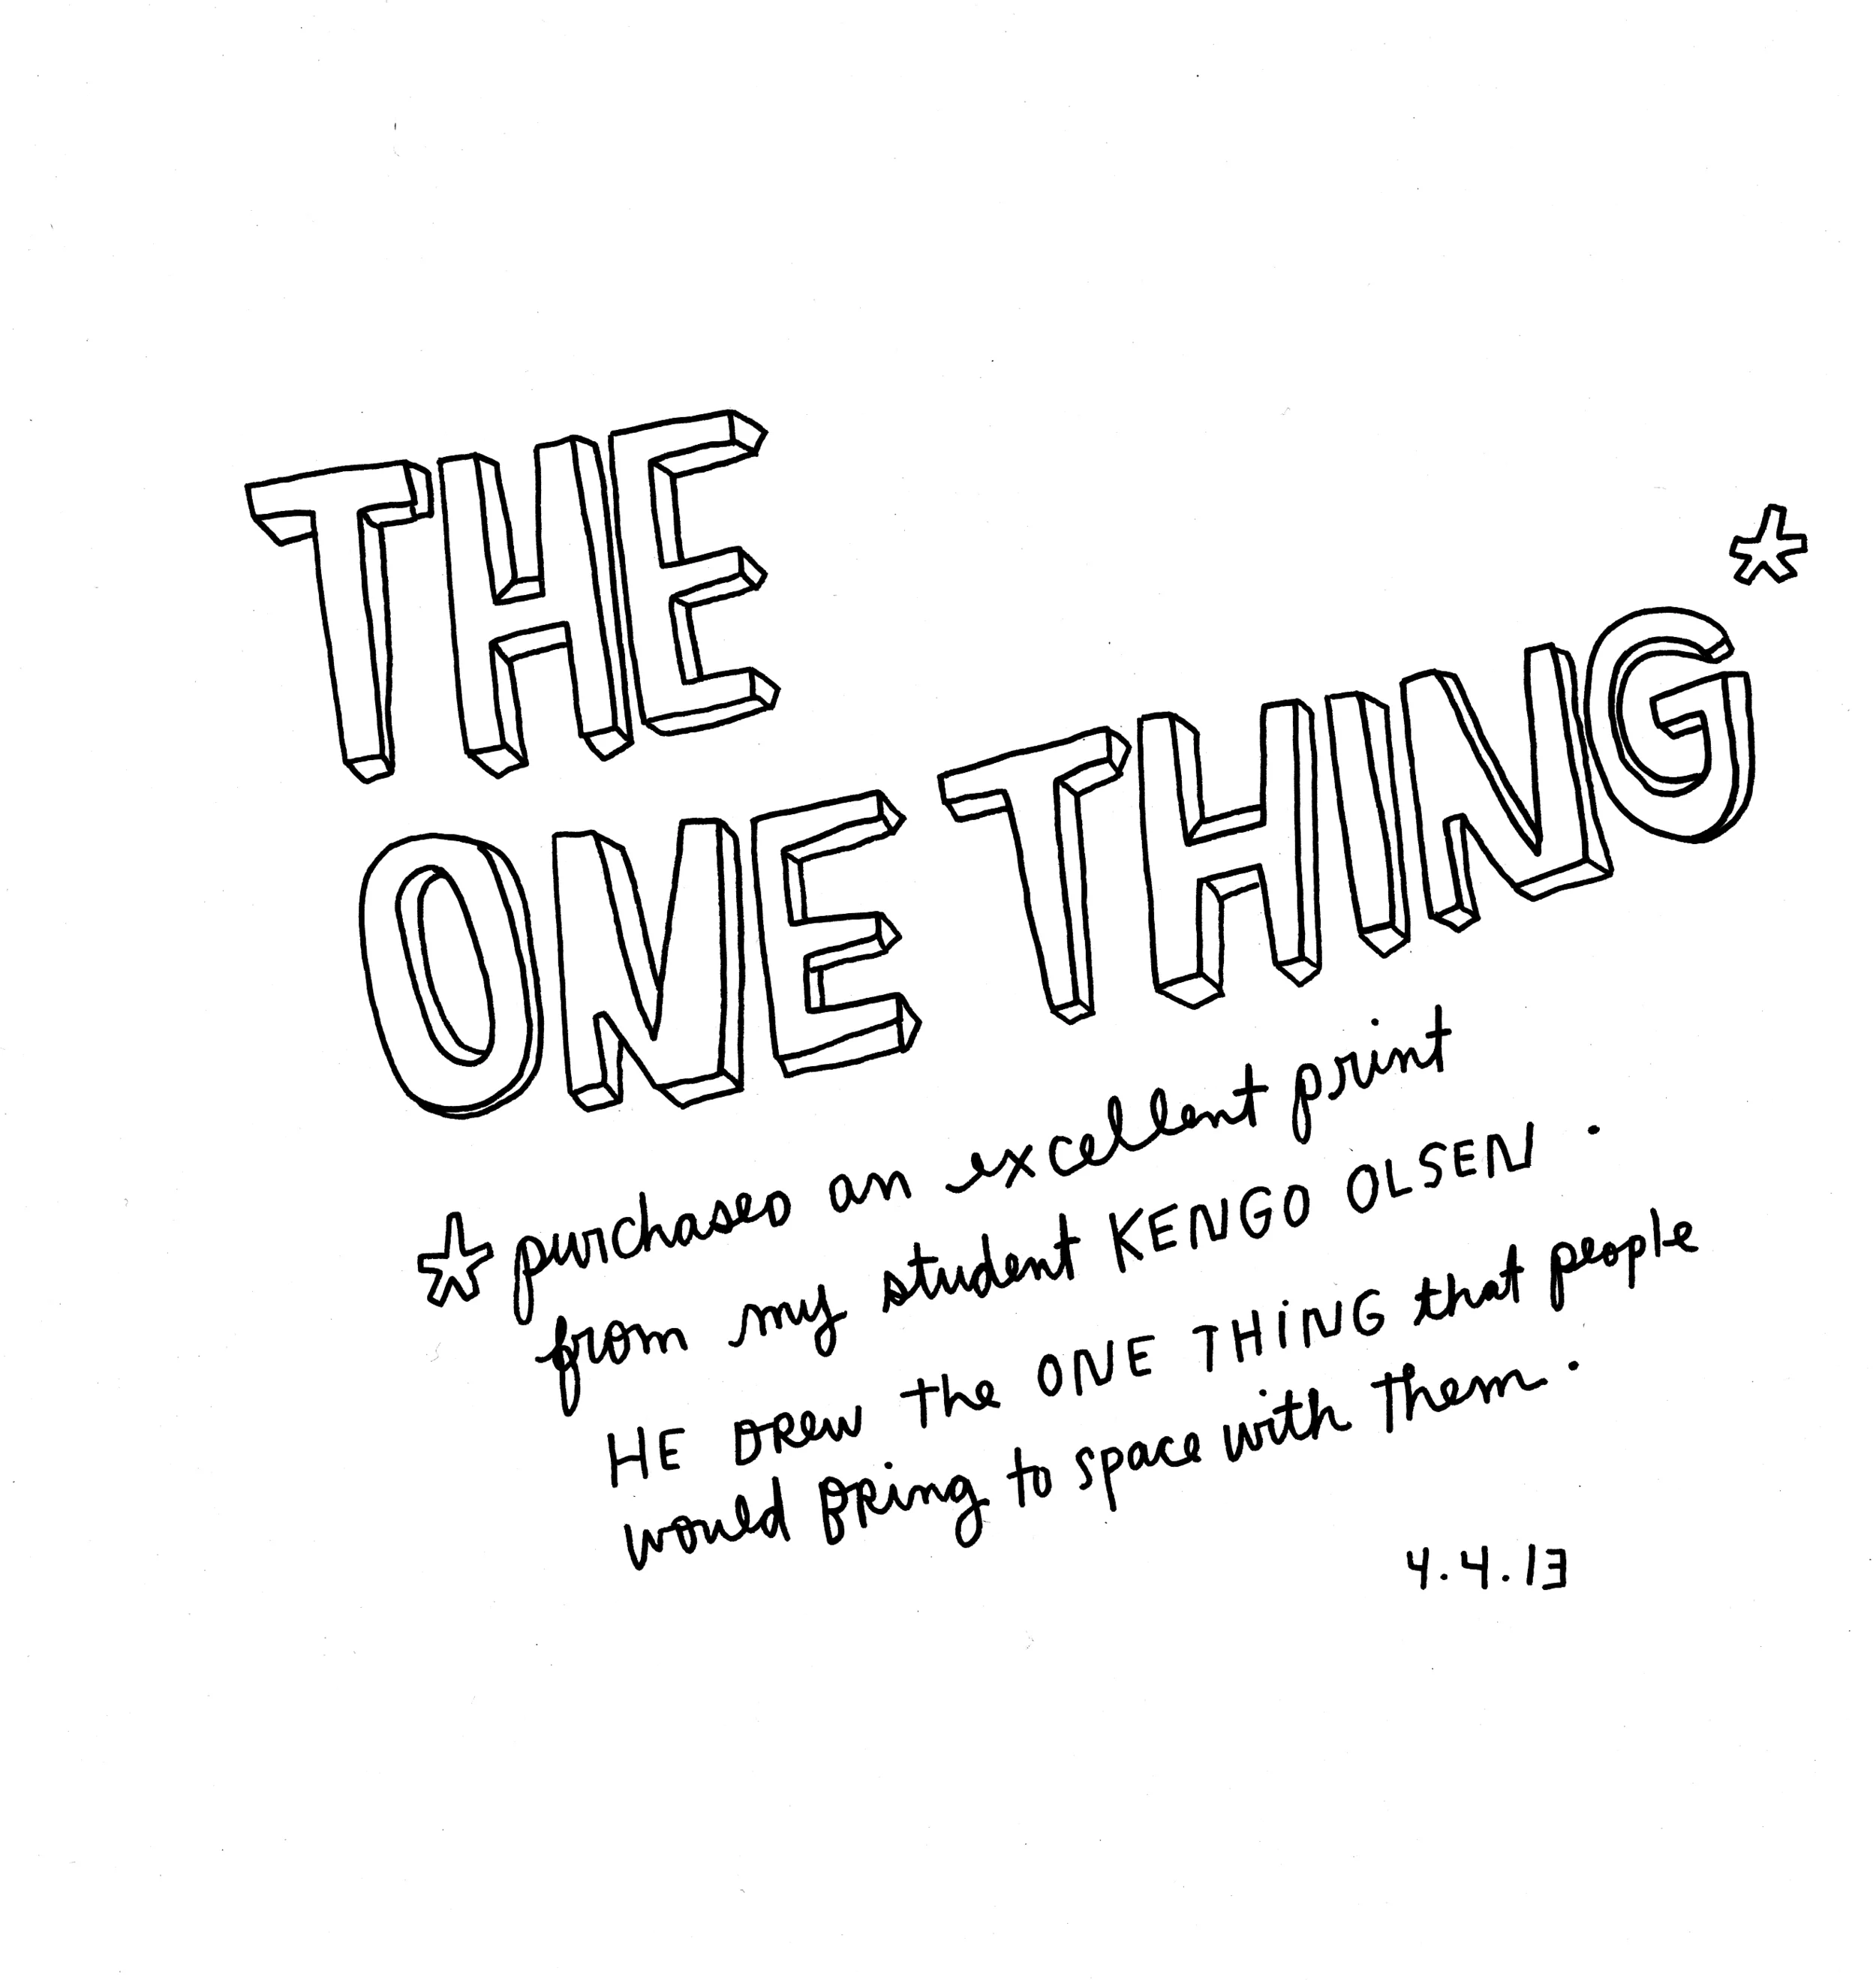 THE
ONE THING*
* purchased an excellent print
from my student KENGO OLSEN.
HE DREW the ONE THING that people
would bring to space with them.
4.4.13